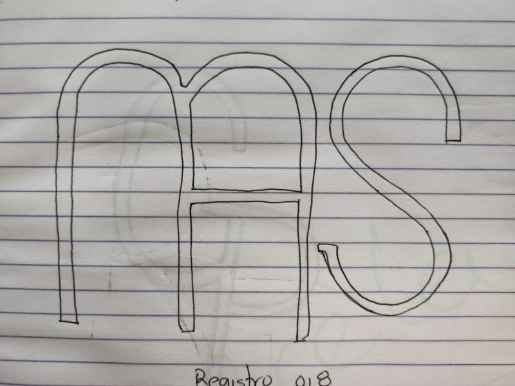 mAS
Registro 018